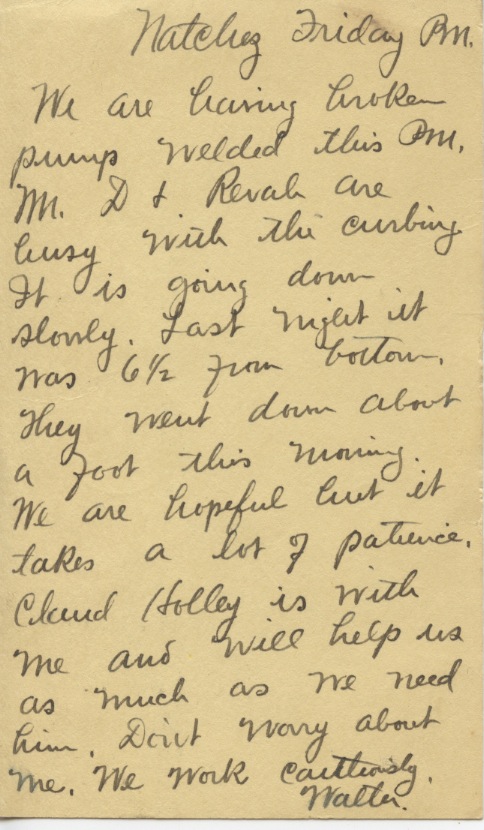 Natchez Friday PM.
We are having broken
pump welded this PM.
Mr. D & Revah are
busy with the curbing
It is going down
slowly. Last night it
was 6½ from bottom.
They went down about
a foot this morning.
We are hopeful but it
takes a lot of patience.
Claud Holley is with
me and will help us
as much as we need
him. Don't worry about
me. We work cautiously.
Walter.